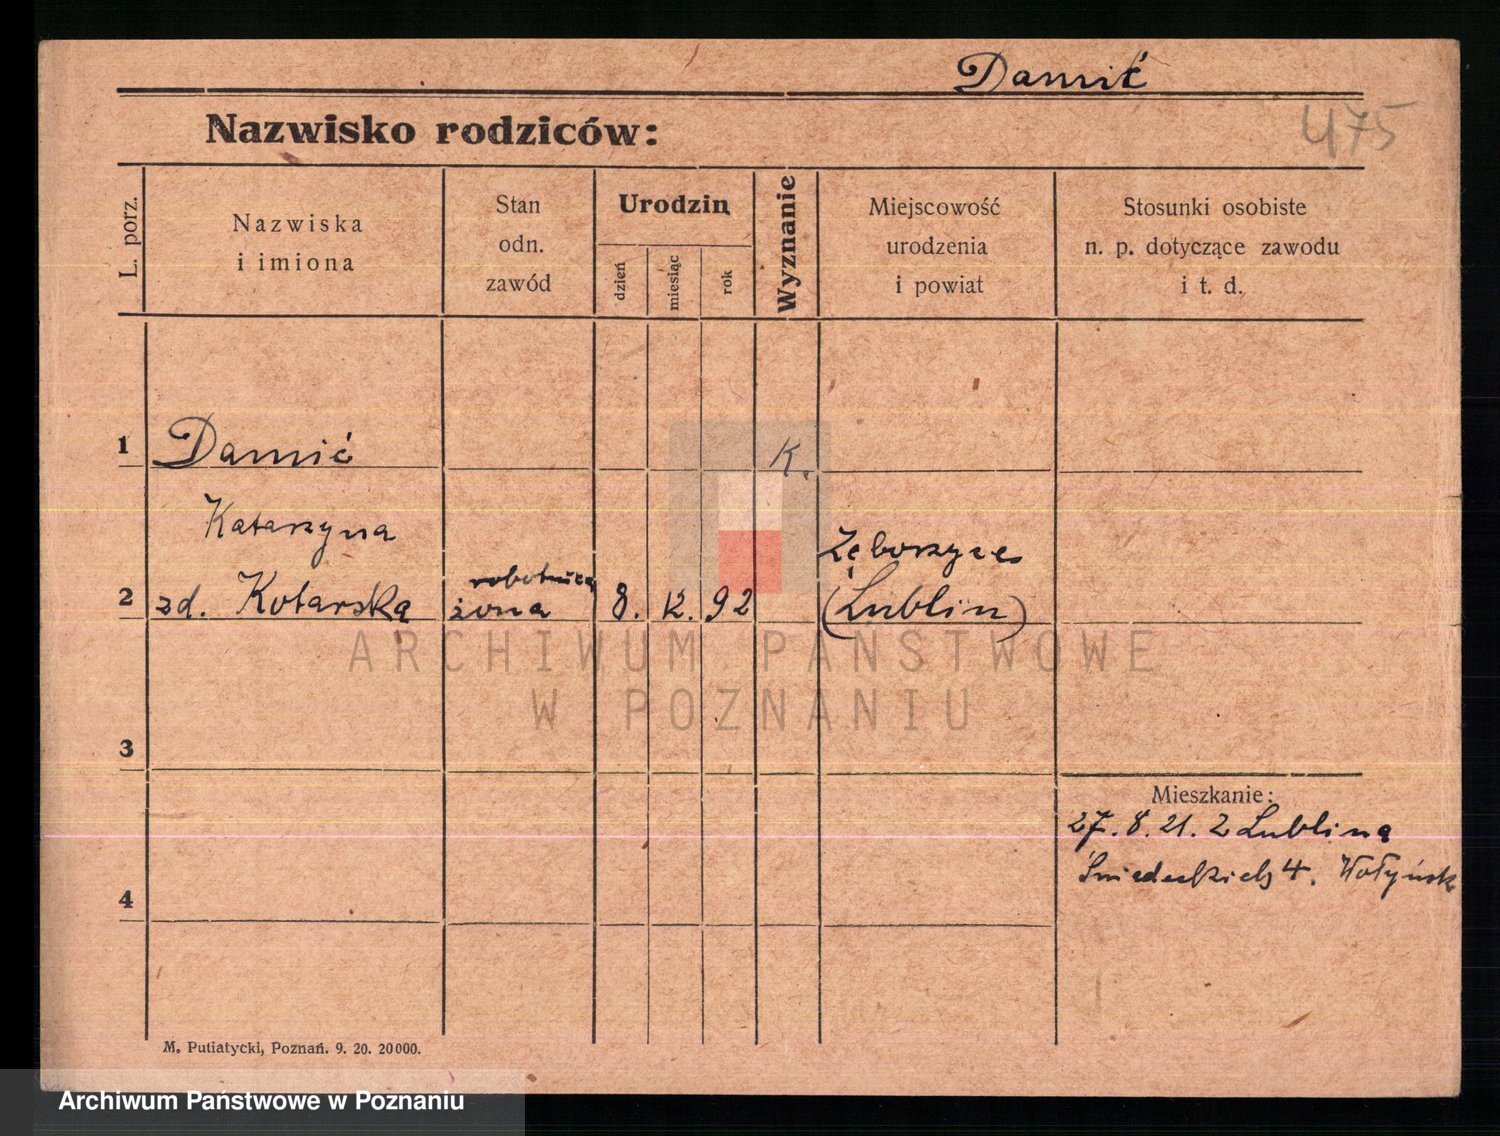 Damić
475
Nazwisko rodziców:
L. porz.
Nazwiska
i imiona
Stan
odn.
zawód
Urodzin
dzień
miesiąc
rok
Wyznanie
Miejscowość
urodzenia
i powiat
Stosunki osobiste
n. p. dotyczące zawodu
i t. d.
1 Damić K.
Katarzyna
2 zd. Kotarska robotnica żona 8. 12. 92 (Lublin)
3
4
Mieszkanie:
27. 8. 21. z Lublina
Śniadeckich 4. Wołyńsk
M. Putiatycki, Poznań. 9. 20. 20000.
ARCHIWUM PAŃSTWOWE
W POZNANIU
Archiwum Państwowe w Poznaniu